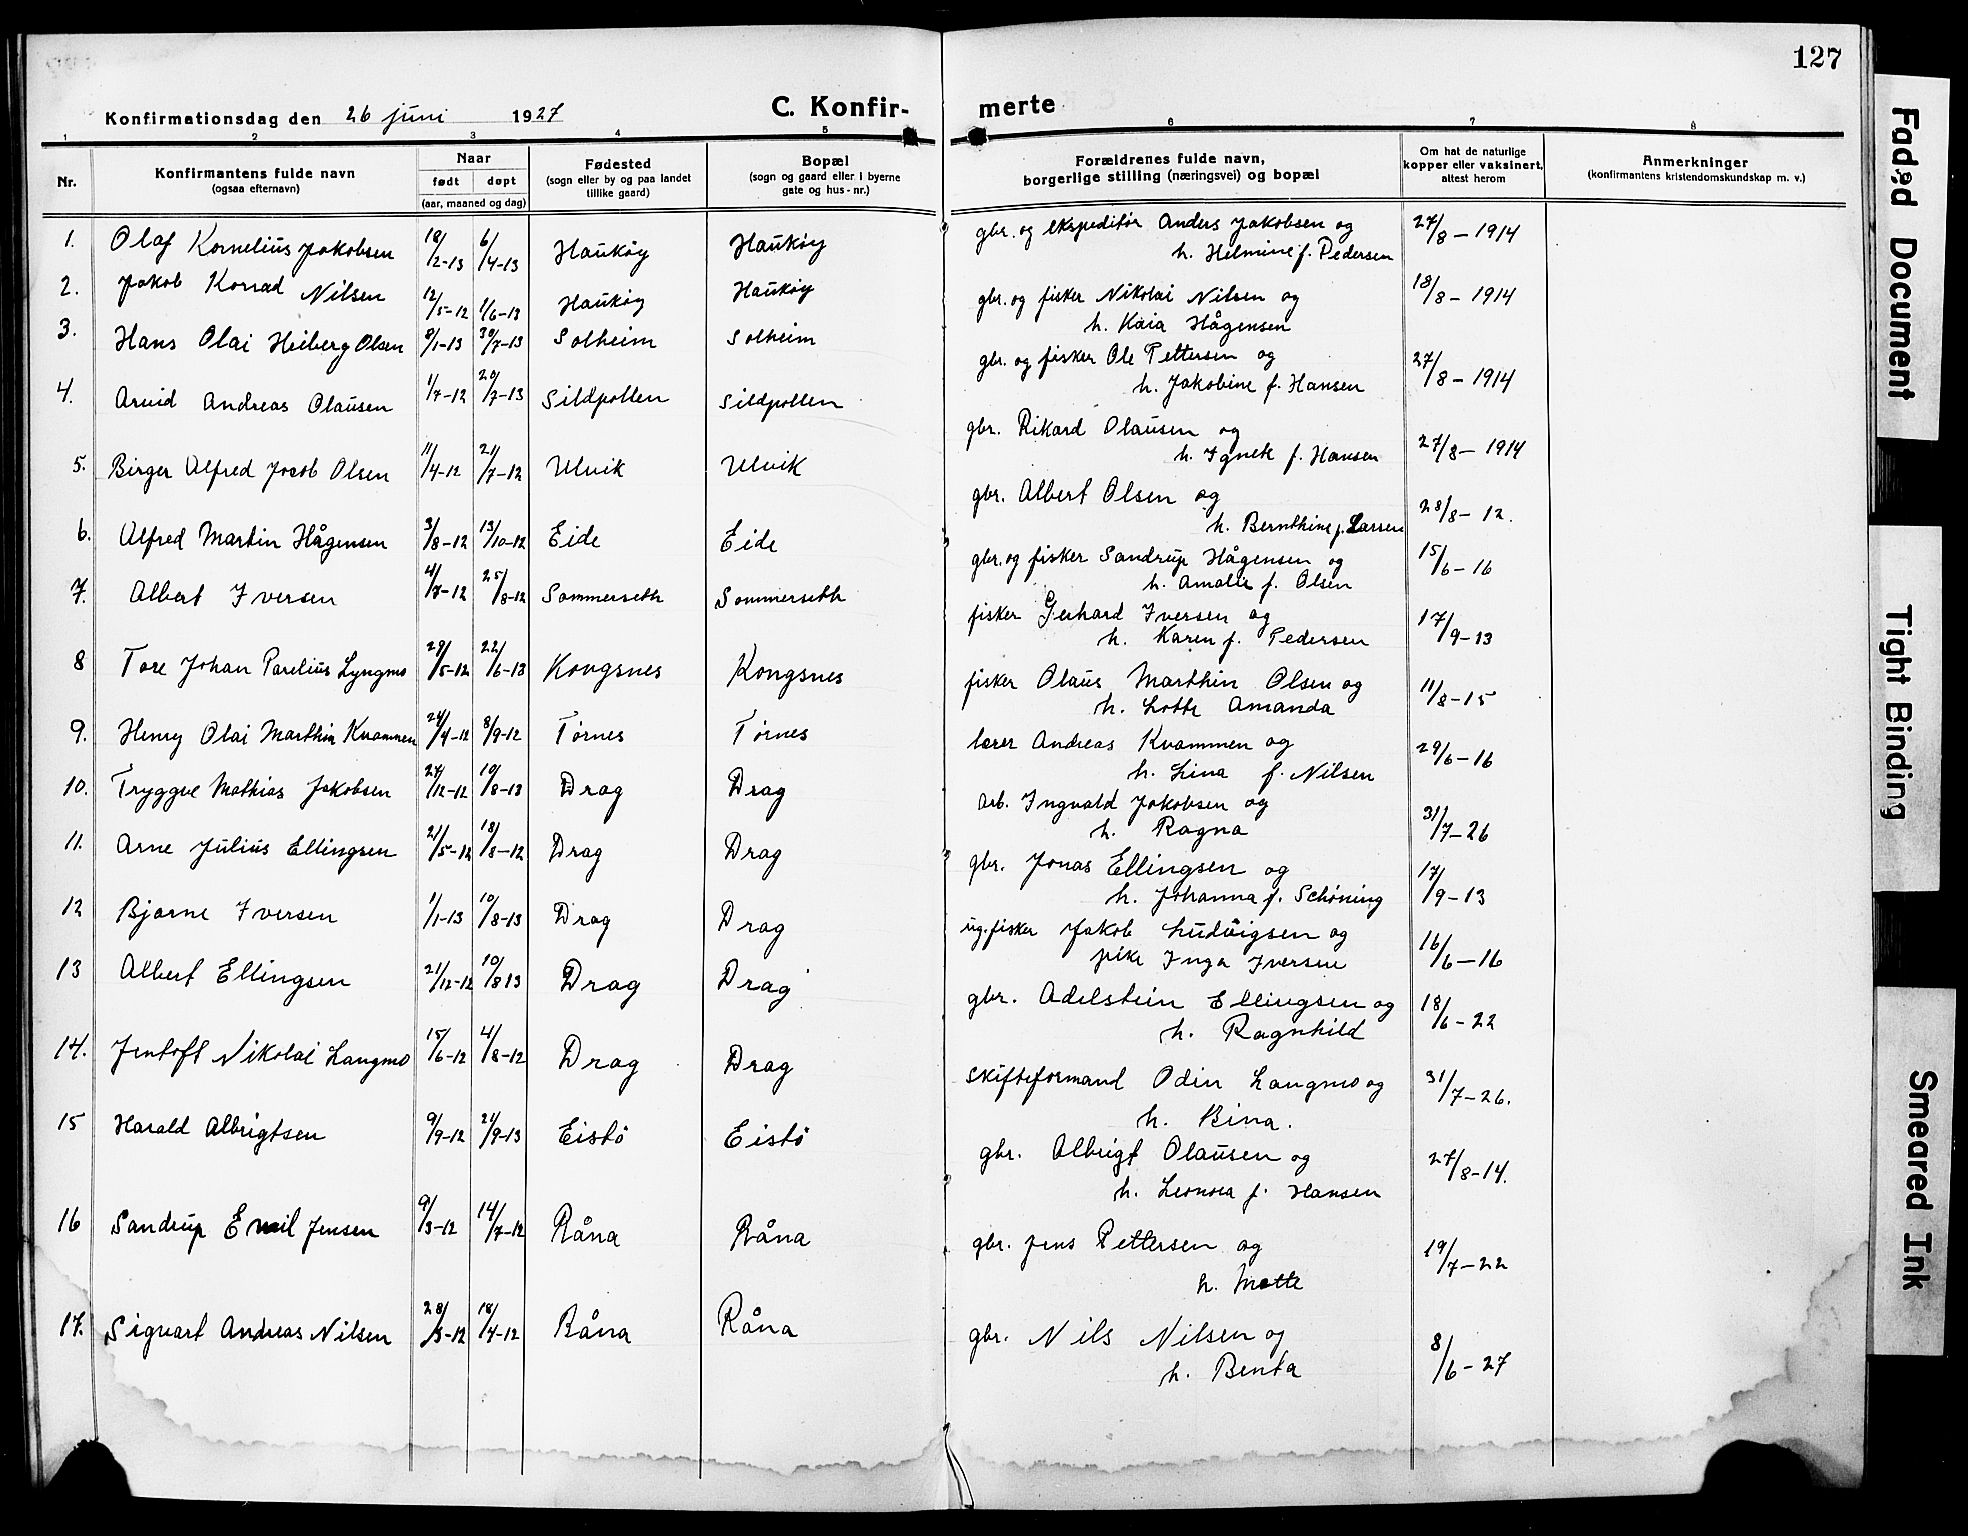 127
Konfirmationsdag den 26 juni 1927
C. Konfirmerte
1 2 3 4 5 6 7 8
Nr.
Konfirmantens fulde navn
(ogsaa efternavn)
Naar
født døpt
(aar, maaned og dag)
Fødested
(sogn eller by og paa landet
tillike gaard)
Bopæl
(sogn og gaard eller i byerne
gate og hus-nr.)
Forældrenes fulde navn,
borgerlige stilling (næringsvei) og bopæl
Om hat de naturlige
kopper eller vaksinert,
attest herom
Anmerkninger
(konfirmantens kristendomskundskap m. v.)
1. Olaf Kornelius Jakobsen 18/2-13 6/4-13 Haukøy Haukøy gbr. og ekspeditør Anders Jakobsen og 27/8-1914
h. Helmine f. Pedersen
2. Jakob Konrad Nilsen 12/5-12 1/6-13 Haukøy Haukøy gbr. og fisker Nikolai Nilsen og 18/8-1914
h. Kaia Hågensen
3. Hans Olai Heiberg Olsen 8/1-13 30/7-13 Solheim Solheim gbr. og fisker Ole Pettersen og 27/8-1914
h. Jakobine f. Hansen
4. Arvid Andreas Olausen 1/7-12 20/7-13 Sildpollen Sildpollen gbr. Rikard Olausen og 27/8-1914
h. Ignek f. Hansen
5. Birger Alfred Jocob Olsen 11/4-12 21/7-12 Ulvik Ulvik gbr. Albert Olsen og 28/8-12.
h. Bernthine f. Larsen
6. Alfred Martin Hågensen 3/8-12 13/10-12 Eide Eide gbr. og fisker Sandrup Hågensen og 15/6-16
h. Amalie f. Olsen
7. Albert Iversen 4/7-12 25/8-12 Sommerseth Sommerseth fisker Gerhard Iversen og 17/9-13
h. Karen f. Pedersen
8 Tore Johan Parelius Lyngmo 29/5-12 22/6-13 Kongsnes Kongsnes fisker Olaus Marthin Olsen og 11/8-15
h. Lotte Amanda
9. Henry Olai Marthin Kvammen 24/4-12 8/9-12 Tørnes Tørnes lærer Andreas Kvammen og 29/6-16
h. Lina f. Nilsen
10. Tryggve Mathias Jakobsen 27/12-12 10/8-13 Drag Drag arb. Ingvald Jakobsen og 31/7-26
h. Ragna
11. Arne Julius Ellingsen 21/5-12 18/8-12 Drag Drag gbr. Jonas Ellingsen og 17/9-13
h. Johanna f. Schöning
12 Bjarne Iversen 1/1-13 10/8-13 Drag Drag ug. fisker Jakob Ludvigsen og 16/6-16
pike Inga Iversen
13 Albert Ellingsen 21/12-12 10/8 13 Drag Drag gbr. Adelstein Ellingsen og 18/6-22
h. Ragnhild
14. Jentoft Nikolai Langmo 15/6-12 4/8-12 Drag Drag skifteformand Odin Langmo og 31/7-26.
h. Bina.
15 Harald Albrigtsen 9/9-12 21/9-13 Eistö Eistö gbr. Albrigt Olausen og 27/8-14.
h. Leonora f. Hansen
16 Sandrup Emil Jensen 9/3-12 14/7-12 Råna Råna gbr. Jens Pettersen og 19/7-22
h. Mette
17. Sigvart Andreas Nilsen 28/3-12 18/4-12 Råna Råna gbr. Nils Nilsen og 8/6-27
h. Benta
Faded Document
Tight Binding
Smeared Ink